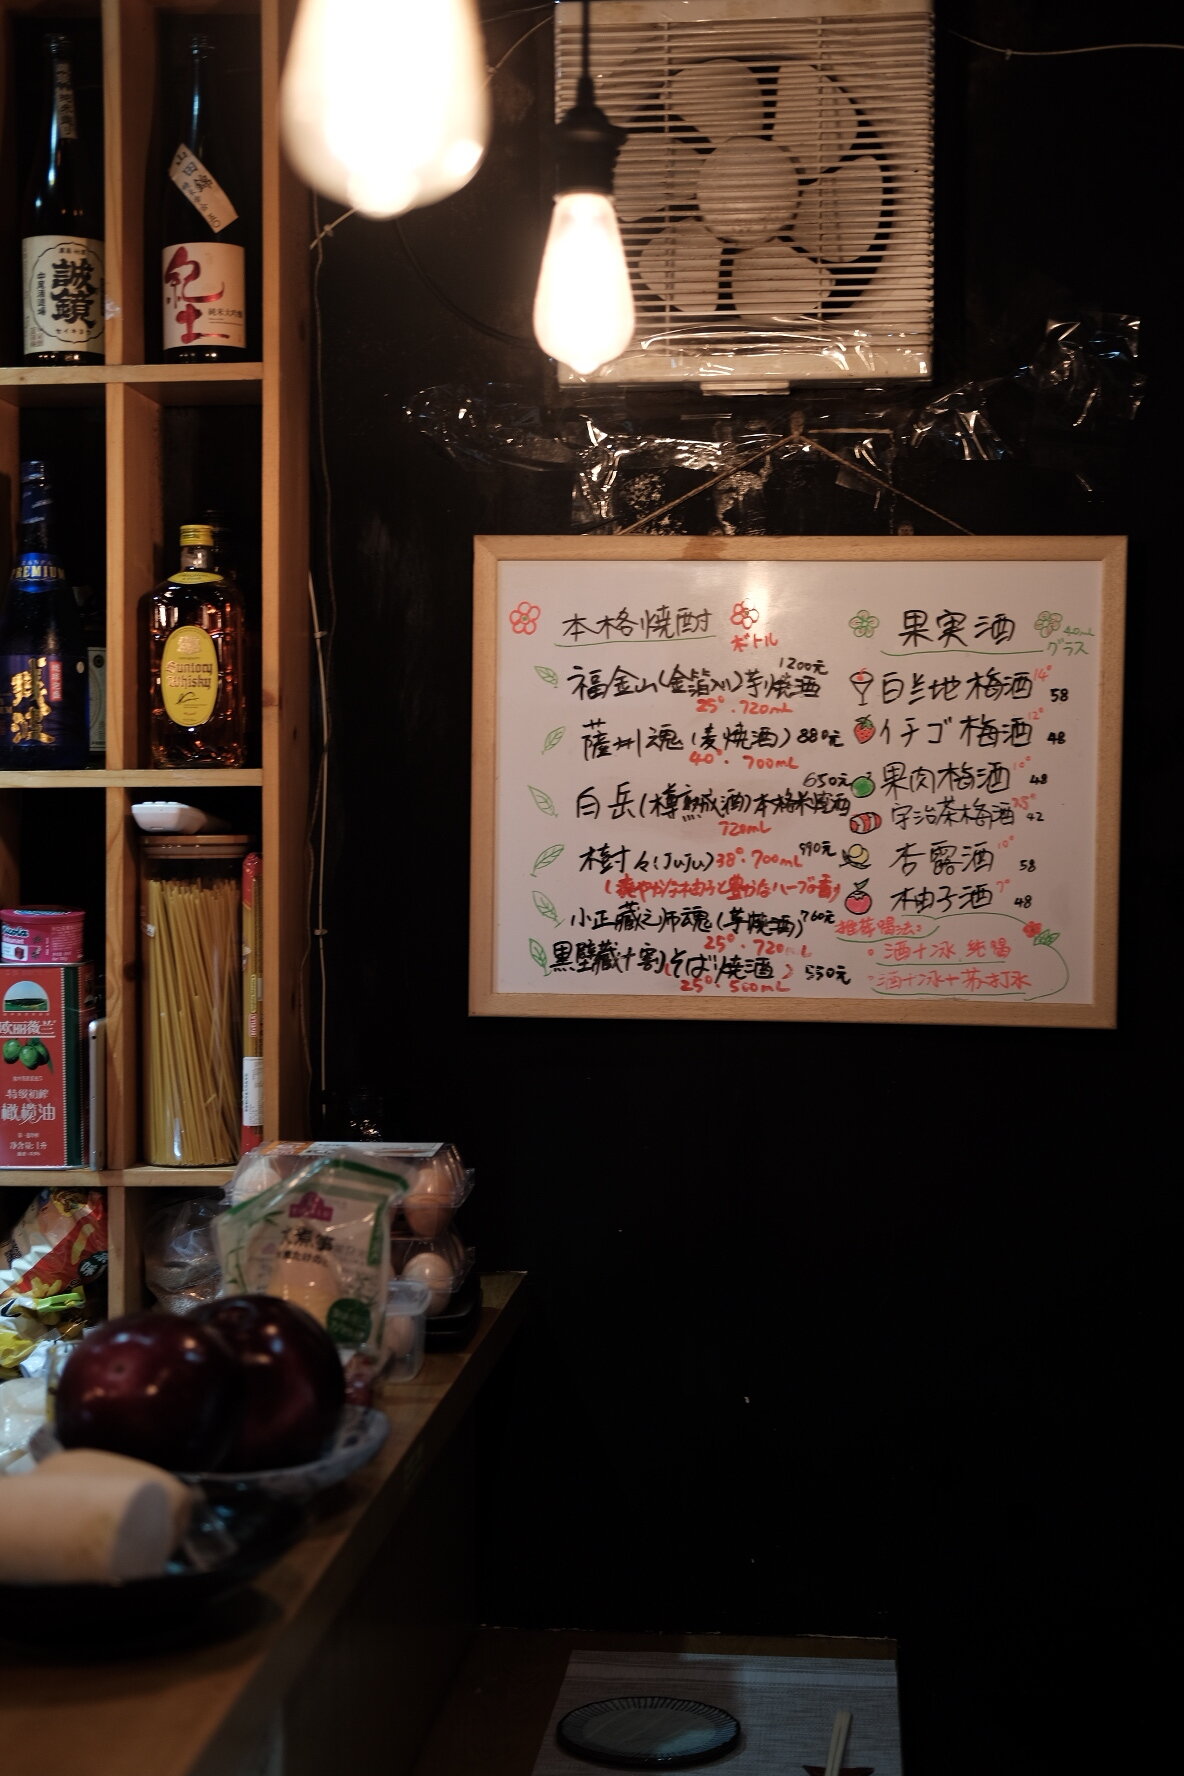 誠鏡
セイキョウ
山田錦
紀土
純米大吟醸
PREMIUM
Suntory
Whisky
欧丽薇兰
特级初榨
橄榄油
净含量:1升
水煮筍
本格焼酎
ボトル
福金山(金箔入り)芋焼酒 1200元
25° ・720mL
薩州魂(麦焼酒)880元
40° ・700mL
白岳(樽熟成酒)本格米焼酒 650元
720mL
樹々(JuJu)38° ・700mL 990元
(爽やかな柚子と豊かなハーブの香)
小正蔵之师魂(芋焼酒)760元
25° ・720mL
黒壁蔵十割(そば焼酒)550元
25° ・500mL
果実酒
40mL
グラス
白兰地梅酒 14° 58
イチゴ梅酒 12° 48
果肉梅酒 10° 48
宇治茶梅酒 42
杏露酒 10° 58
柚子酒 7° 48
推荐喝法:
・酒+冰 纯喝
・酒+冰+苏打水